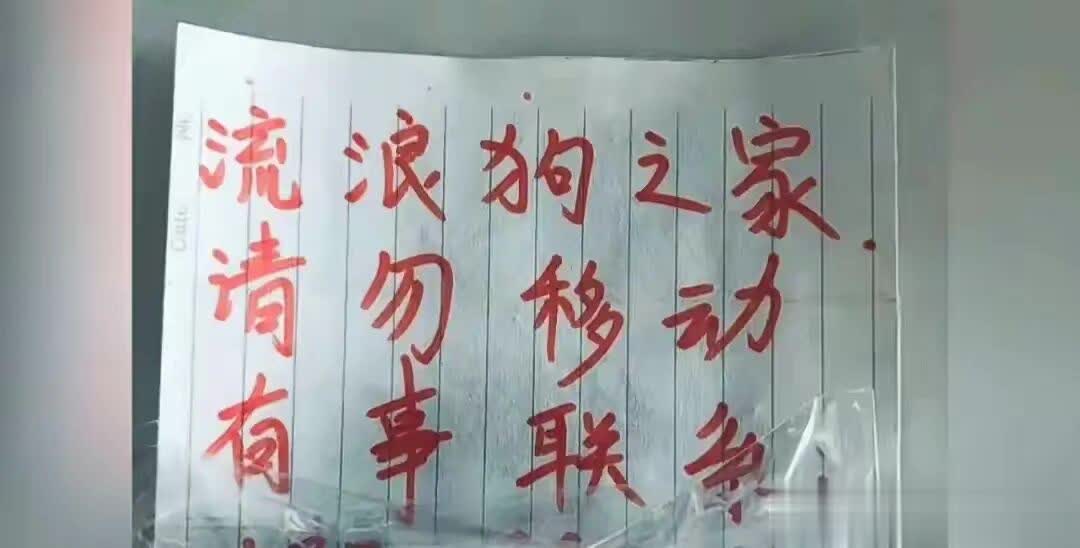 流浪狗之家.
请勿移动
有事联系